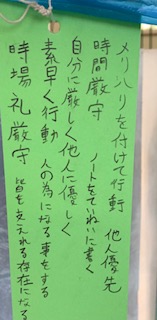 メリハリを付けて行動　他人優先
時間厳守　ノートをていねいに書く
自分に厳しく他人に優しく
素早く行動　人の為になる事をする
時場礼厳守　皆を支えれる存在になる